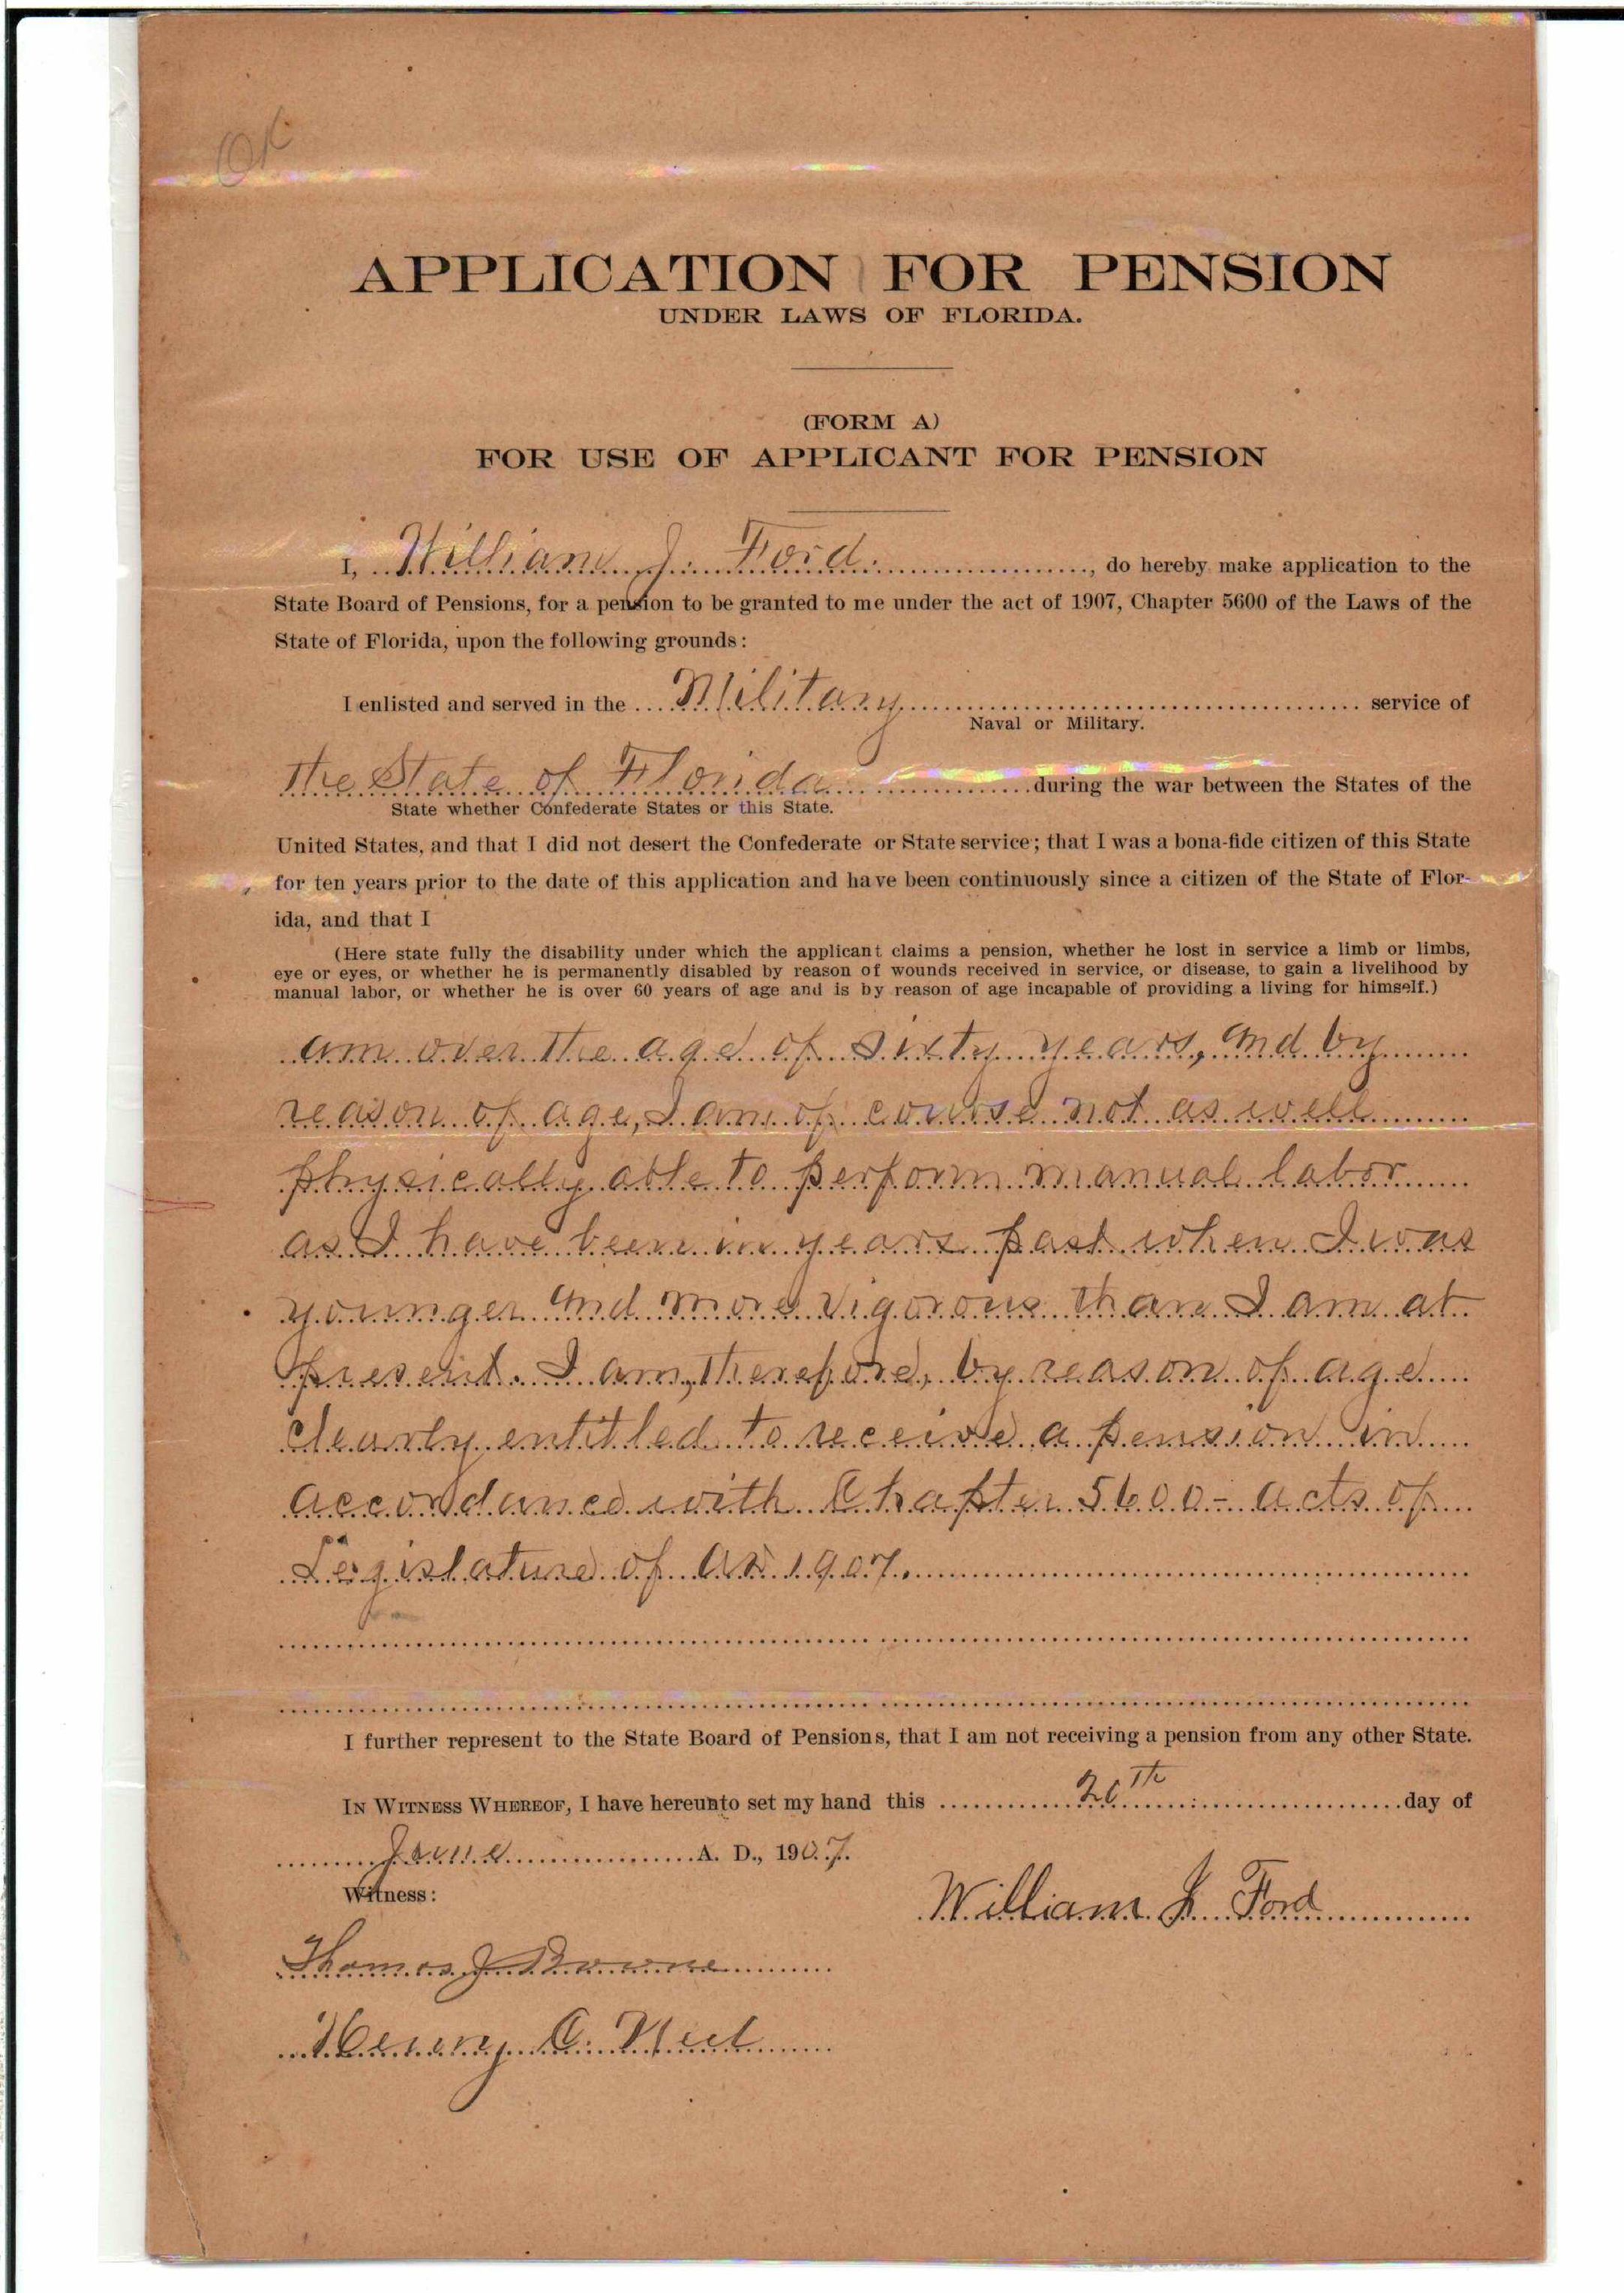 OK
APPLICATION FOR PENSION
UNDER LAWS OF FLORIDA.
(FORM A)
FOR USE OF APPLICANT FOR PENSION
I, William J. Ford, do hereby make application to the
State Board of Pensions, for a pension to be granted to me under the act of 1907, Chapter 5600 of the Laws of the
State of Florida, upon the following grounds:
I enlisted and served in the Military service of
Naval or Military.
the State of Florida during the war between the States of the
State whether Confederate States or this State.
United States, and that I did not desert the Confederate or State service; that I was a bona-fide citizen of this State
for ten years prior to the date of this application and have been continuously since a citizen of the State of Flor-
ida, and that I
(Here state fully the disability under which the applicant claims a pension, whether he lost in service a limb or limbs,
eye or eyes, or whether he is permanently disabled by reason of wounds received in service, or disease, to gain a livelihood by
manual labor, or whether he is over 60 years of age and is by reason of age incapable of providing a living for himself.)
am over the age of sixty years, and by
reason of age, I am of course not as well
physically able to perform manual labor
as I have been in years past when I was
younger and more vigorous than I am at
present. I am, therefore, by reason of age
clearly entitled to receive a pension in
accordance with Chapter 5600- acts of
Legislature of AD 1907.
I further represent to the State Board of Pensions, that I am not receiving a pension from any other State.
IN WITNESS WHEREOF, I have hereunto set my hand this 20th day of
June A. D., 1907.
Witness:
William J. Ford
Thomas J.
Henry C.